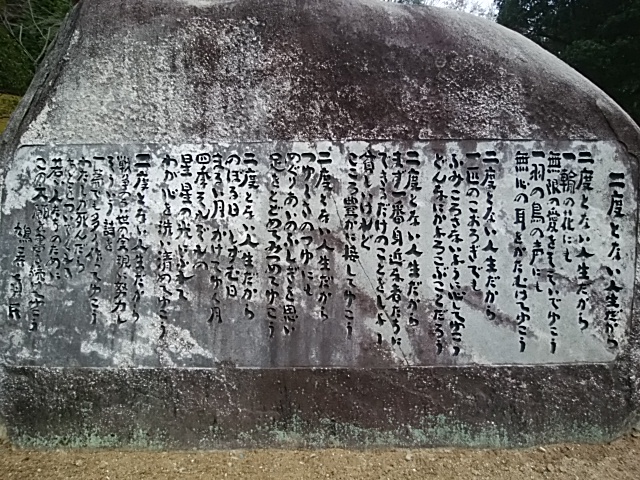 二度とない人生だから
二度とない人生だから
一輪の花にも
無限の愛をそそいでゆこう
一羽の鳥の声にも
無心の耳をかたむけてゆこう
二度とない人生だから
一匹のこおろぎでも
ふみころさないように心してゆこう
どんなにかよろこぶことだろう
二度とない人生だから
まず一番身近な者たちに
できるだけのことをしよう
貧しいけれど
こころ豊かに接してゆこう
二度とない人生だから
つゆくさのつゆにも
めぐりあいのふしぎを思い
足をとどめてみつめてゆこう
二度とない人生だから
のぼる日 しずむ日
まるい月 かけてゆく月
四季それぞれの
星星の光にふれて
わが心を洗い清めてゆこう
二度とない人生だから
戦争のない世の実現に努力し
そういう詩を
一篇でも多く作ってゆこう
わたしが死んだら
あとをついでくれる
若い人たちのために
この大願を書き続けてゆこう
坂村真民